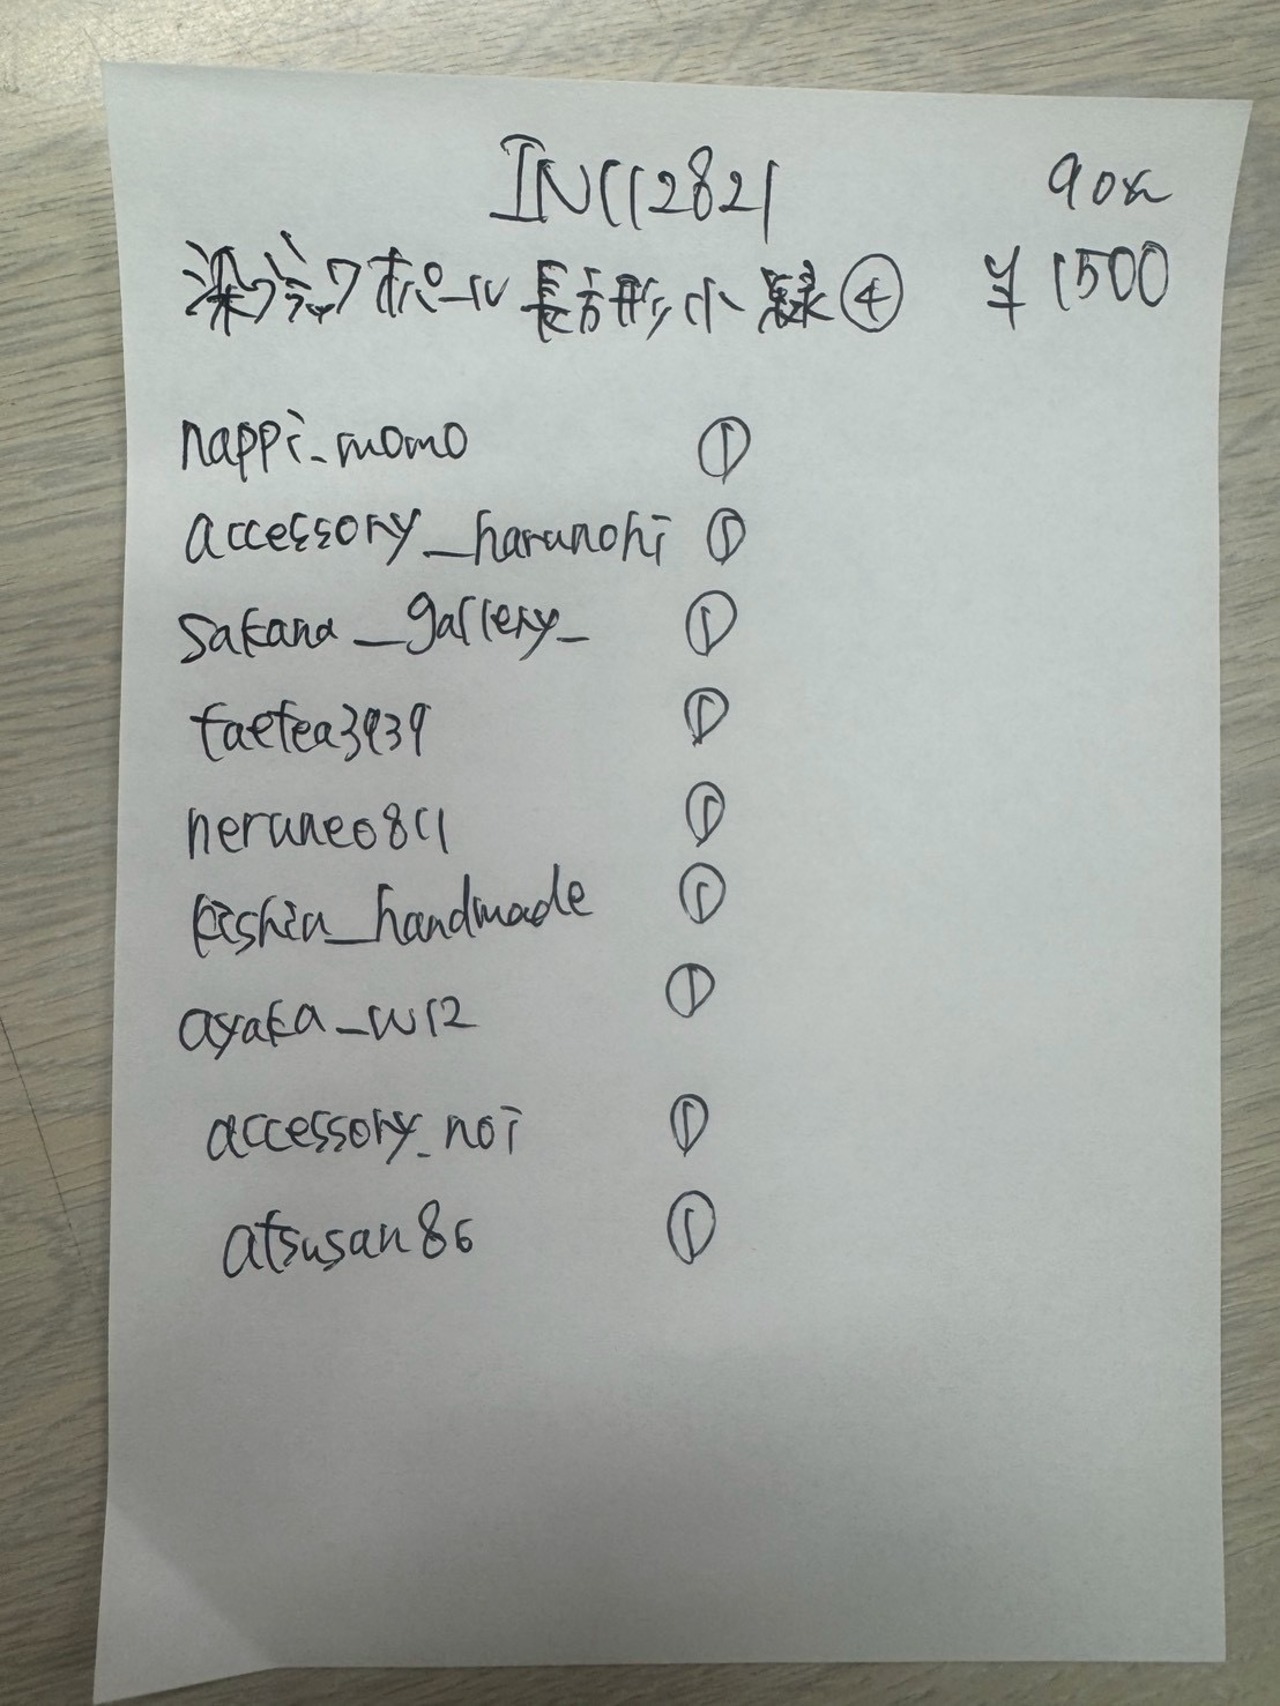 INC112821 90pc
染淡クオパール長方形小緑④ ¥1500
nappi_momo ①
accessory_harunohi ①
sakana_gallery_ ①
taetea3939 ①
neruneo811 ①
kishin_handmade ①
ayaka_w12 ①
accessory_noi ①
atsusan86 ①